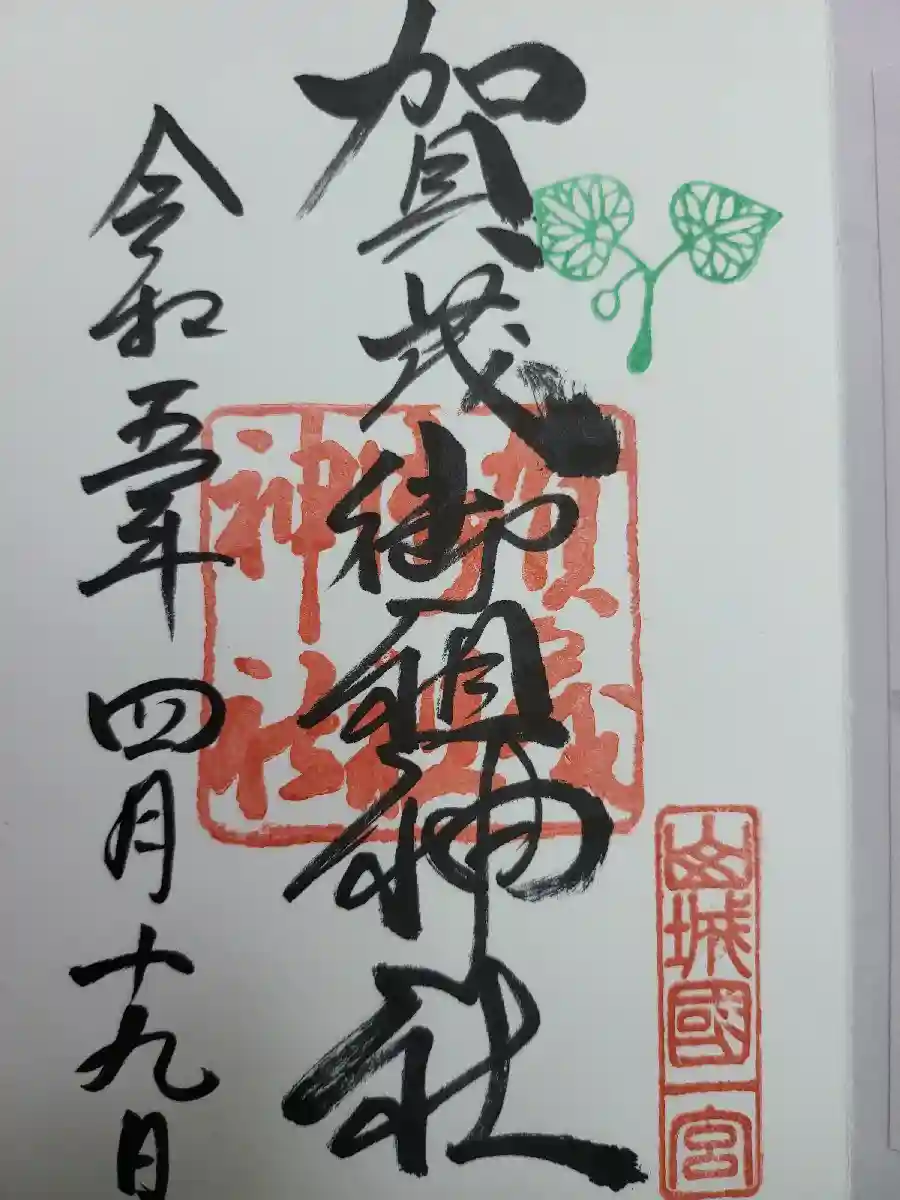 山城國一宮
賀茂御祖神社
賀茂御祖神社
令和五年四月十九日